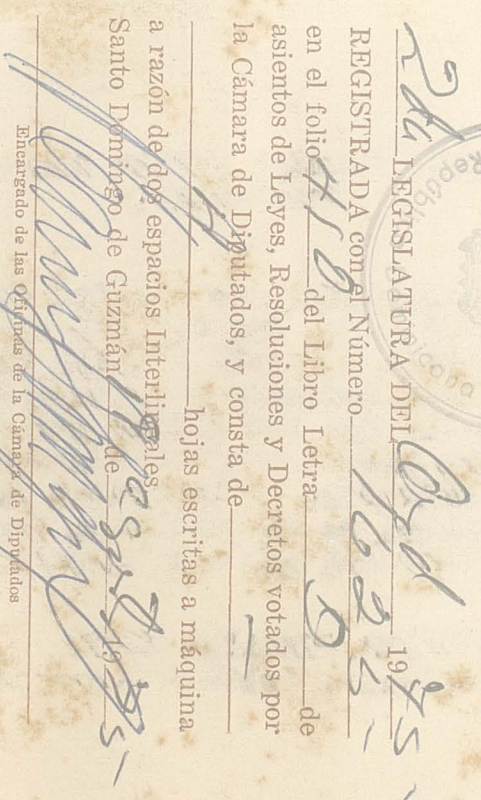 2da LEGISLATURA DEL Ord 1975
REGISTRADA con el Número 1625
en el folio 410 del Libro Letra D de
asientos de Leyes, Resoluciones y Decretos votados por
la Cámara de Diputados, y consta de
hojas escritas a máquina
a razón de dos espacios Interlineales
Santo Domingo de Guzmán de 19
Encargado de las Oficinas de la Cámara de Diputados